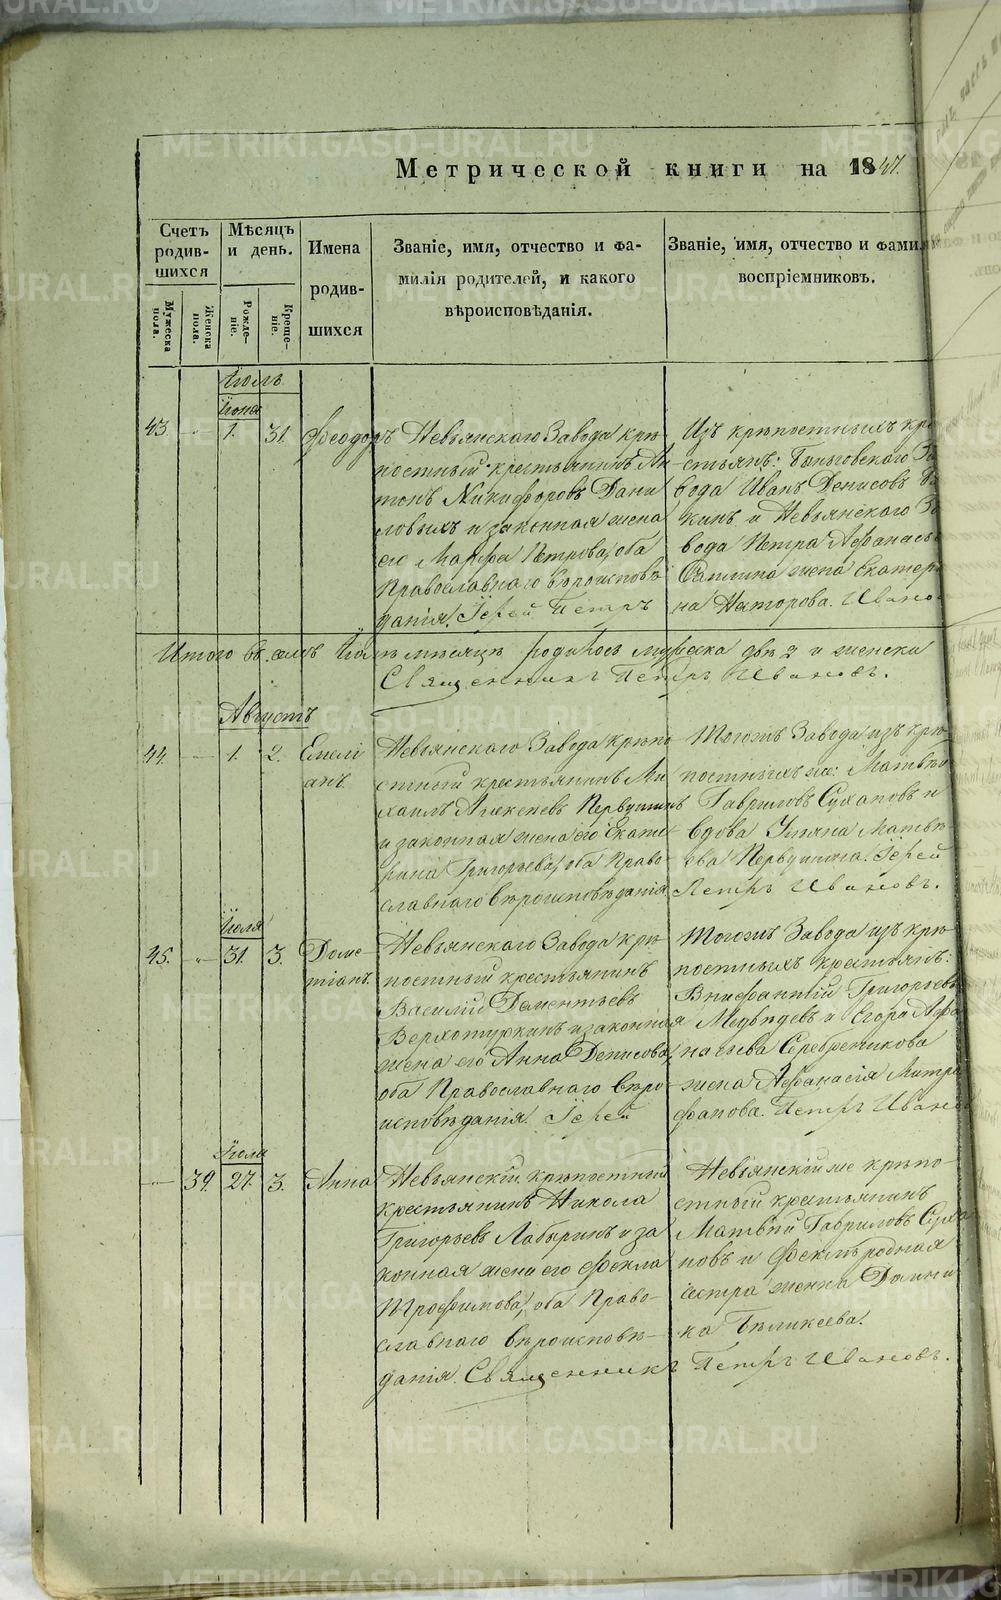 Метрической книги на 1847.
Счетъ родив-шихся
Мѣсяцъ и день.
Имена родив-шихся
Званіе, имя, отчество и фа-
милія родителей, и какого
вѣроисповѣданія.
Званіе, имя, отчество и фами
воспріемниковъ.
Мужеска пола.
Женска пола.
Рожде-ніе.
Креще-ніе.
Іюль
Іюля
43. 1. 31. Ѳеодоръ
Невьянскаго Завода крѣ-
постный крестьянинъ Ан-
тонъ Никифоровъ Дани
ловыхъ и законная жена
его Марѳа Петрова, оба
Православнаго вѣроисповѣ
данія. Іерей Петръ
Изъ крѣпостныхъ кре
стьянъ: Быньговскаго За
вода Иванъ Денисовъ
кинъ и Невьянскаго За
вода Петра Аѳанасье
жена Екатери
на Иванов
Итого въ семъ Іюлѣ мѣсяцѣ родилось мужска двѣ 2 и женска
Священникъ Петръ Ивановъ.
Августъ
44. 1. 2. Емелі
анъ.
Невьянскаго Завода крѣпо
стный крестьянинъ Ми
хаилъ Алексѣевъ Первушинъ
и законная жена его Екате
рина Григорьева, оба Право-
славнаго вѣроисповѣданія.
Тогожъ Завода изъ крѣ
постныхъ же: Матвѣй
Гавриловъ Сухановъ и
вдова Ульяна Матвѣ
ева Первушина. Іерей
Петръ Ивановъ.
Іюля
45. 31. 3. Доме-
тіанъ.
Невьянскаго Завода крѣ
постный крестьянинъ
Василій Дементьевъ
Верхотуркинъ и законная
жена его Анна Денисова,
оба Православнаго вѣро-
исповѣданія. Іерей
Тогожъ Завода изъ крѣ
постныхъ крестьянъ:
Внифантій Григорьевъ
Медвѣдевъ и Егора Аѳа
насьева Серебреникова
жена Аѳанасія Митро
фанова. Петръ Иванов
Іюля
39. 27. 3. Анна
Невьянскій крѣпостный
крестьянинъ Никола
Григорьевъ Лабыринъ и за
конная жена его Ѳекла
Трофимова, оба Право-
славнаго вѣроисповѣ-
данія. Священникъ Петръ Ивановъ.
Невьянскій же крѣпо-
стный крестьянинъ
Матвѣй Гавриловъ Суха
новъ и Ѳеклѣ родная
сестра женка Домни
ка Бѣликеева.